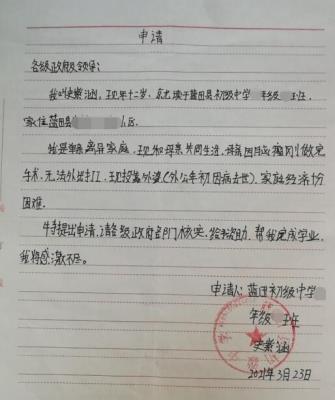 申请
各级政府及领导：
我叫史紫涵，现年十二岁，就读于蓝田县初级中学 年级 班，
家住蓝田县 小区。
我是单亲离异家庭，现和母亲共同生活，母亲因 刚做完
手术，无法外出打工，现投靠外婆（外公年初因病去世）。家庭经济切
困难。
特提出申请，请各级政府部门核实，给予资助，帮我完成学业，
我将感激不尽。
申请人：蓝田初级中学
年级 班
史紫涵
2021年3月23日